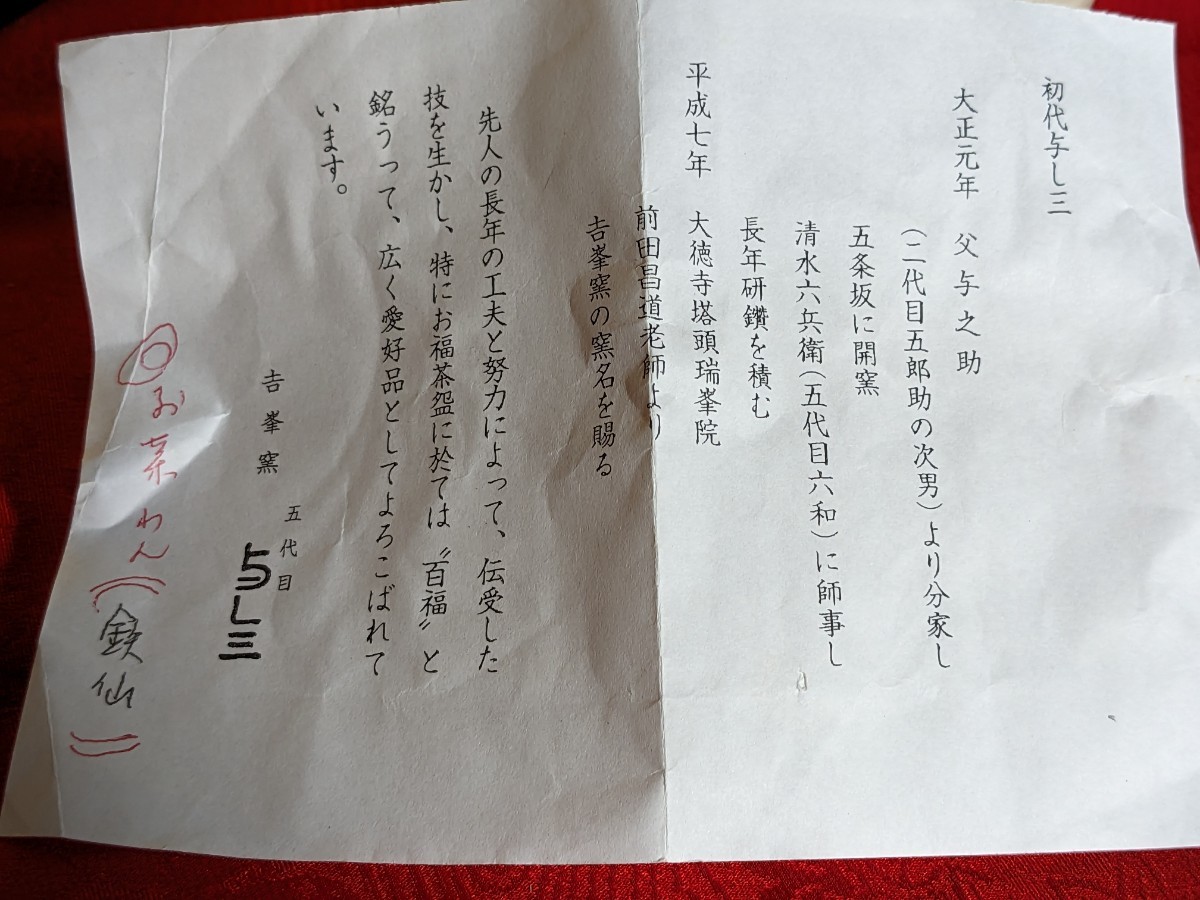 初代与し三
大正元年 父与之助
(二代目五郎助の次男)より分家し
五条坂に開窯
清水六兵衛(五代目六和)に師事し
長年研鑽を積む
平成七年 大徳寺塔頭瑞峯院
前田昌道老師より
吉峯窯の窯名を賜る
先人の長年の工夫と努力によって、伝受した
技を生かし、特にお福茶盌に於ては〝百福〟と
銘うって、広く愛好品としてよろこばれて
います。
吉峯窯
五代目
与し三
◎お茶わん(鉄仙)